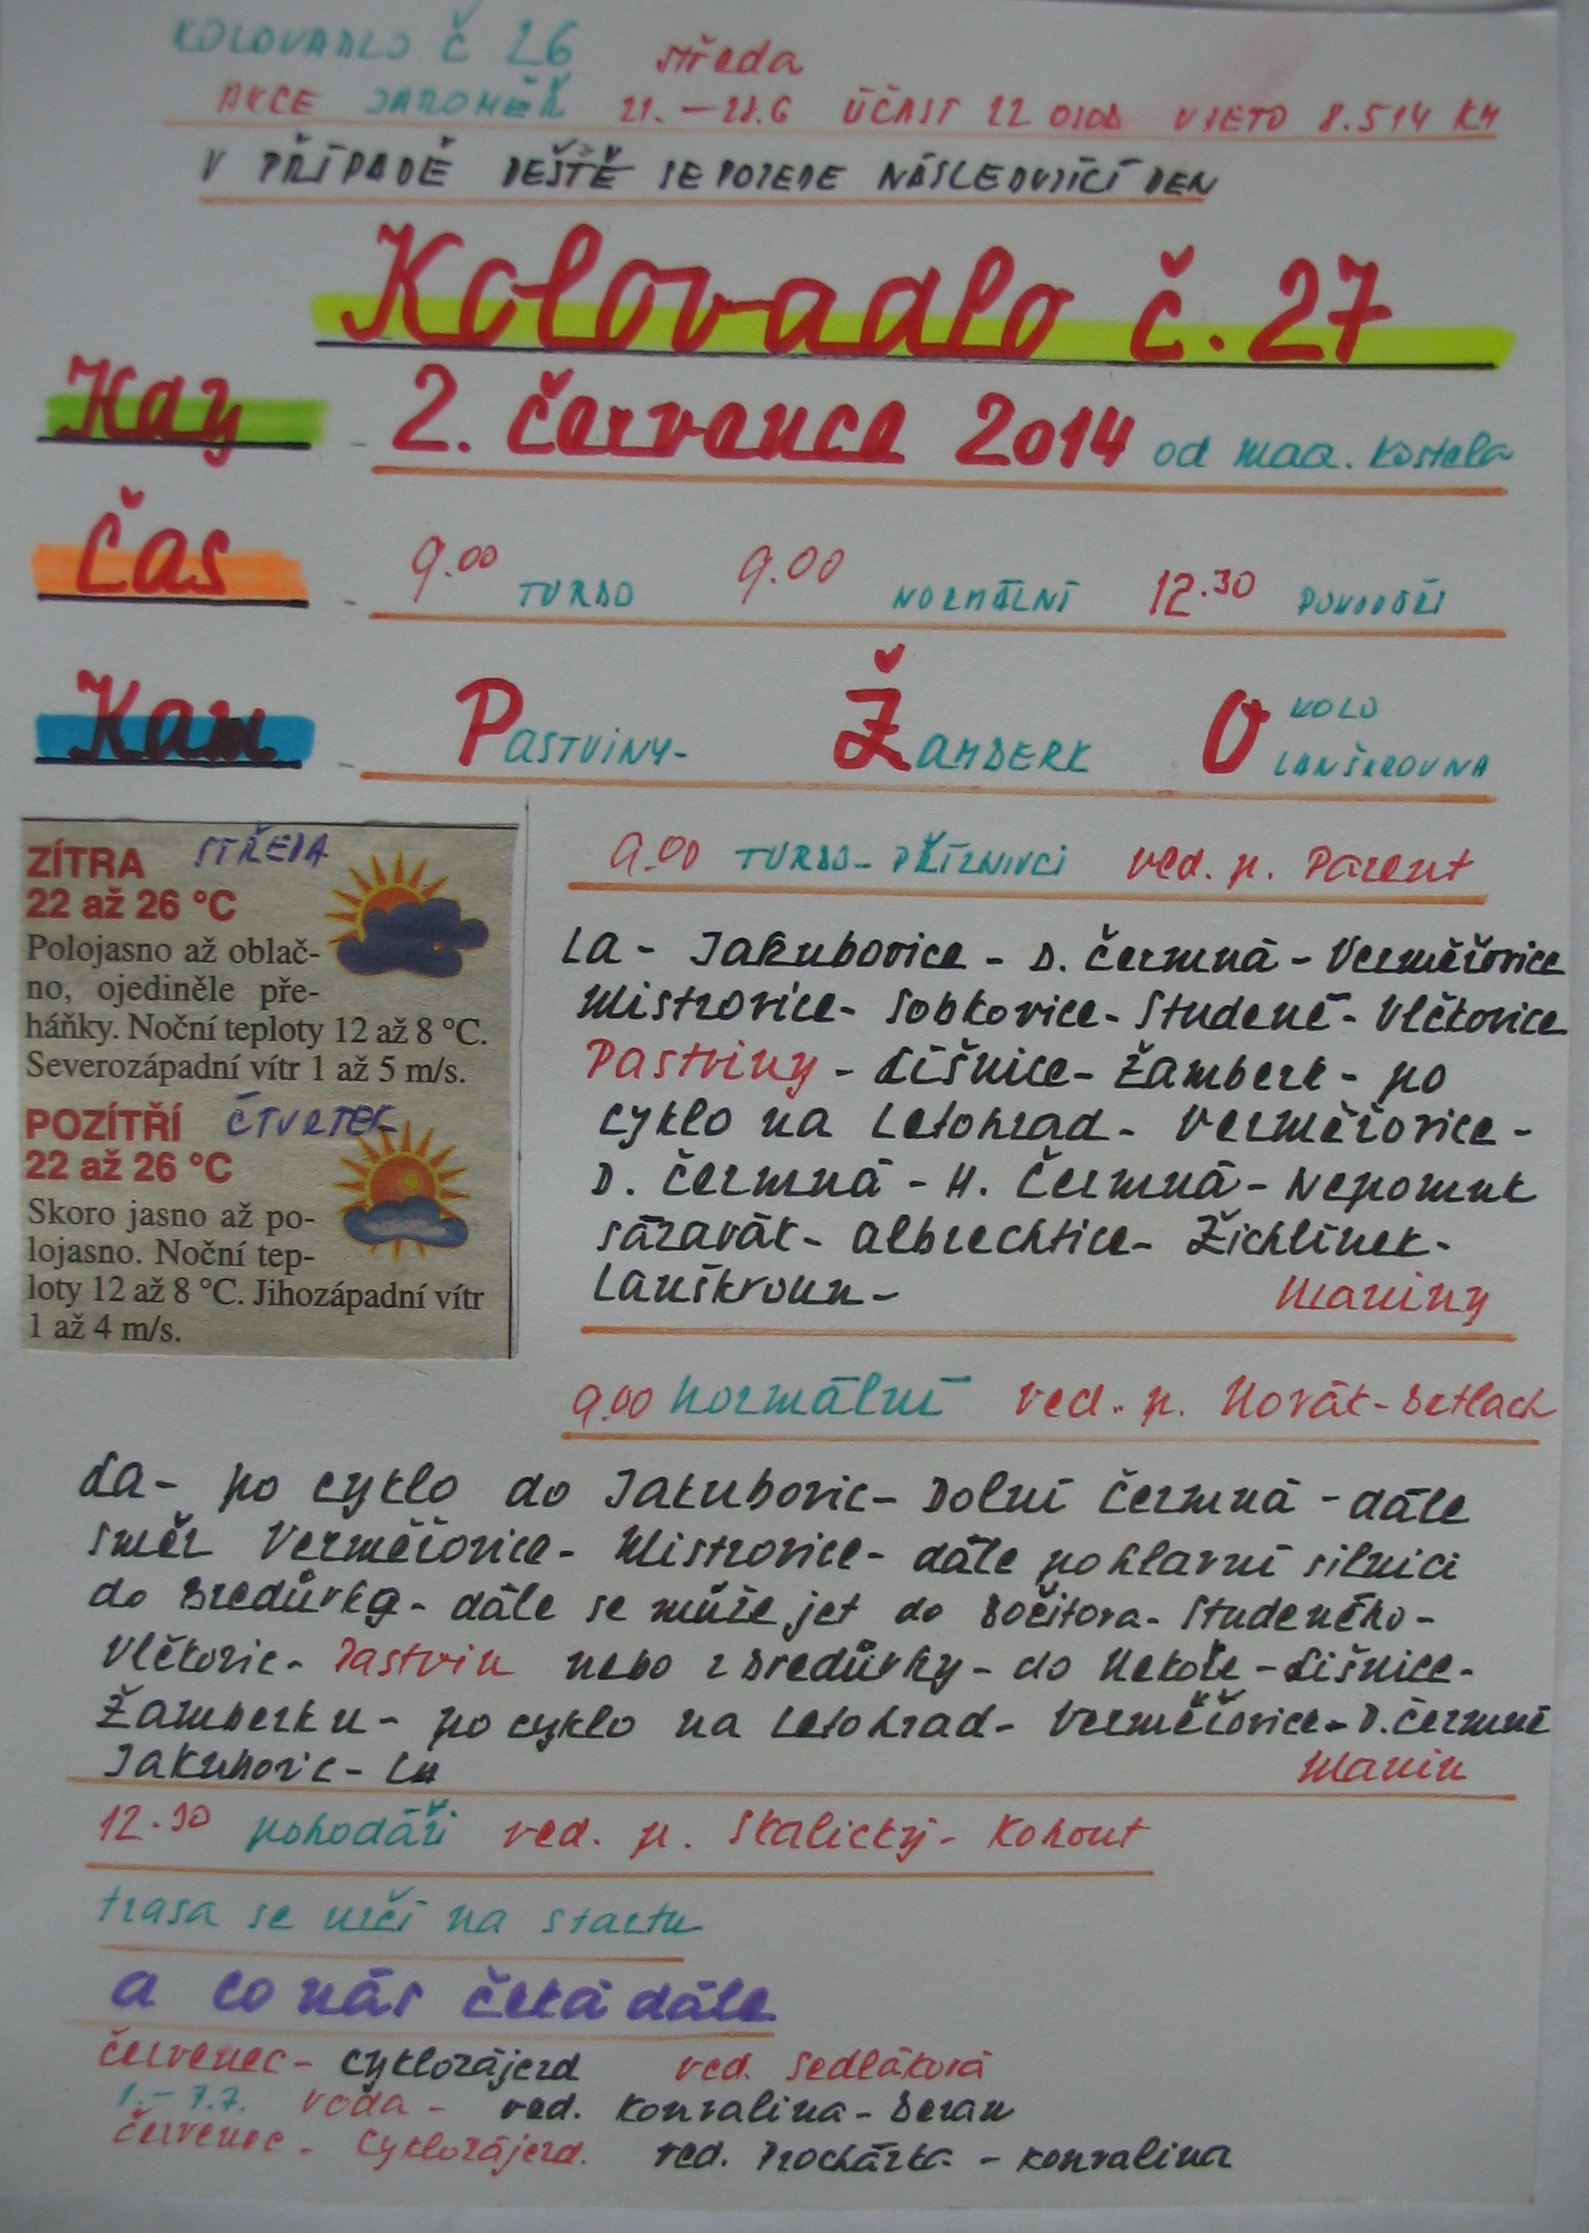 KOLOVADLO Č 26 středa
AKCE JAROMĚŘ 21.-28.6 ÚČAST 22 OSOB UJETO 8.514 KM
V PŘÍPADĚ DEŠTĚ SE POJEDE NÁSLEDUJÍCÍ DEN
Kolovadlo č. 27
Kdy - 2. července 2014 od maa. kostela
Čas - 9.00 TURBO 9.00 NORMÁLNÍ 12.30 POHODÁŘI
Kam - PASTVINY- ŽAMBERK OKOLO LANŠKROUNA
ZÍTRA STŘEDA
22 až 26 °C
Polojasno až oblač-
no, ojediněle pře-
háňky. Noční teploty 12 až 8 °C.
Severozápadní vítr 1 až 5 m/s.
POZÍTŘÍ ČTVRTEK
22 až 26 °C
Skoro jasno až po-
lojasno. Noční tep-
loty 12 až 8 °C. Jihozápadní vítr
1 až 4 m/s.
9.00 TURBO- PŘÍZNIVCI ved. p. Parent
LA- Jakubovice - D. Čermná - Verměřovice
Mistrovice- Sobkovice- Studené- Vlčkovice
Pastviny - Líšnice- Žamberk- po
cyklo na Letohrad- Verměřovice-
D. Čermná - H. Čermná - Nepomuk
Sázavák- albrechtice- Žichlínek-
Lanškroun- Maniny
9.00 Normální ved. p. Novák- Betlach
La- po cyklo do Jakubovic- Dolní Čermná - dále
směr Verměřovice- Mistrovice- dále po hlavní silnici
do Bredůvka- dále se může jet do Bočitova- Studeného-
Vlčkovic- Pastvin nebo z Bredůvky- do Nekoře - Líšnice-
Žamberku- po cyklo na Letohrad- Verměřovice- D. Čermné
Jakubovic- La Manin
12.30 pohodáři ved. p. Skalický- Kohout
trasa se určí na startu
a co nás čeká dále
červenec- cyklozájezd ved. Sedláková
1.- 7.7. voda - ved. Konvalina- Beran
červenec- Cyklozájezd. ved. Procházka - Konvalina